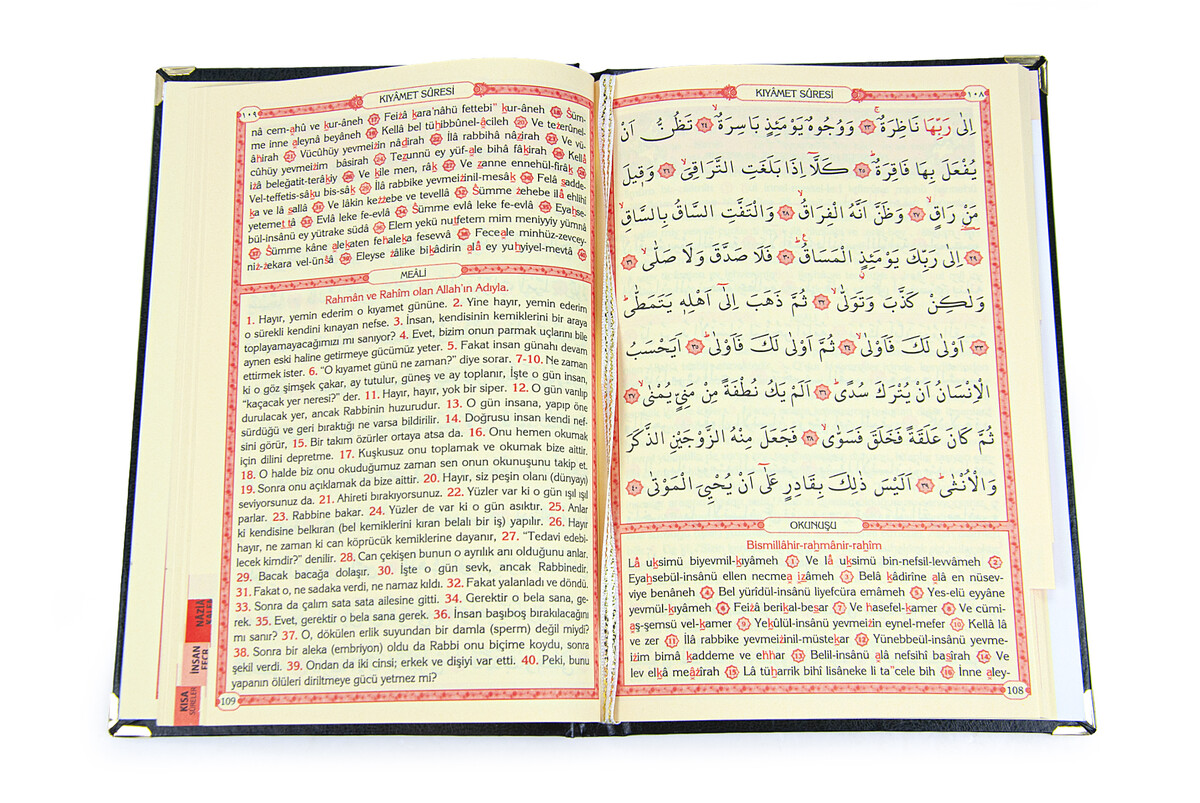 KIYÂMET SÛRESİ
١٠٨
اِلٰى رَبِّهَا نَاظِرَةٌۚ ﴿٢٣﴾ وَوُجُوهٌ يَوْمَئِذٍ بَاسِرَةٌۙ ﴿٢٤﴾ تَظُنُّ اَنْ
يُفْعَلَ بِهَا فَاقِرَةٌۜ ﴿٢٥﴾ كَلَّٓا اِذَا بَلَغَتِ التَّرَاقِيَۙ ﴿٢٦﴾ وَق۪يلَ
مَنْ رَاقٍۙ ﴿٢٧﴾ وَظَنَّ اَنَّهُ الْفِرَاقُۙ ﴿٢٨﴾ وَالْتَفَّتِ السَّاقُ بِالسَّاقِۙ
﴿٢٩﴾ اِلٰى رَبِّكَ يَوْمَئِذٍ الْمَسَاقُۜ ﴿٣٠﴾ فَلَا صَدَّقَ وَلَا صَلّٰىۙ ﴿٣١﴾
وَلٰكِنْ كَذَّبَ وَتَوَلّٰىۙ ﴿٣٢﴾ ثُمَّ ذَهَبَ اِلٰٓى اَهْلِه۪ يَتَمَطّٰىۜ
﴿٣٣﴾ اَوْلٰى لَكَ فَاَوْلٰىۙ ﴿٣٤﴾ ثُمَّ اَوْلٰى لَكَ فَاَوْلٰىۜ ﴿٣٥﴾ اَيَحْسَبُ
الْاِنْسَانُ اَنْ يُتْرَكَ سُدًىۜ ﴿٣٦﴾ اَلَمْ يَكُ نُطْفَةً مِنْ مَنِيٍّ يُمْنٰىۙ ﴿٣٧﴾
ثُمَّ كَانَ عَلَقَةً فَخَلَقَ فَسَوّٰىۙ ﴿٣٨﴾ فَجَعَلَ مِنْهُ الزَّوْجَيْنِ الذَّكَرَ
وَالْاُنْثٰىۜ ﴿٣٩﴾ اَلَيْسَ ذٰلِكَ بِقَادِرٍ عَلٰٓى اَنْ يُحْيِيَ الْمَوْتٰى ﴿٤٠﴾
OKUNUŞU
Bismillâhir-raḥmânir-raḥîm
Lâ uḳsimü biyevmil-ḳıyâmeh (1) Ve lâ uḳsimü bin-nefsil-levvâmeh (2)
Eyaḥsebül-insânü ellen necmea iẓâmeh (3) Belâ ḳâdirîne alâ en nüsev-
viye benâneh (4) Bel yürîdül-insânü liyefcüra emâmeh (5) Yes-elü eyyâne
yevmül-ḳıyâmeh (6) Feiẕâ beriḳal-beṣar (7) Ve ḫasefel-ḳamer (8) Ve cümi-
aş-şemsü vel-ḳamer (9) Yeḳûlül-insânü yevmeiẕin eynel-mefer (10) Kellâ lâ
ve zer (11) İlâ rabbike yevmeiẕinil-müsteḳar (12) Yünebbeül-insânü yevme-
iẕim bimâ ḳaddeme ve eḫḫar (13) Belil-insânü alâ nefsihî baṣîrah (14) Ve
lev elḳâ meâẕîrah (15) Lâ tüḥarrik bihî lisâneke li ta"cele bih (16) İnne aley-
108
KIYÂMET SÛRESİ
١٠٩
nâ cem-ahû ve ḳur-âneh (17) Feiẕâ ḳara'nâhü fettebi" ḳur-âneh (18) Ŝüm-
me inne aleynâ beyâneh (19) Kellâ bel tüḥibbûnel-âcileh (20) Ve teẕerûnel-
âḫirah (21) Vücûhüy yevmeiẕin nâḍirah (22) İlâ rabbihâ nâẓirah (23) Ve vü-
cûhüy yevmeiẕim bâsirah (24) Teẓunnü ey yüf-ale bihâ fâḳirah (25) Kellâ
iẕâ beleğatit-terâḳiy (26) Ve ḳîle men, râḳ (27) Ve ẓanne ennehül-firâḳ (28)
Vel-teffetis-sâḳu bis-sâḳ (29) İlâ rabbike yevmeiẕinil-mesâḳ (30) Felâ ṣadde-
ḳa ve lâ ṣallâ (31) Ve lâkin keẕẕebe ve tevellâ (32) Ŝümme ẕehebe ilâ ehlihî
yetemeṭṭâ (33) Evlâ leke fe-evlâ (34) Ŝümme evlâ leke fe-evlâ (35) Eyaḥse-
bül-insânü ey yütrake südâ (36) Elem yekü nuṭfetem mim meniyyiy yümnâ
(37) Ŝümme kâne aleḳaten feḫaleḳa fesevvâ (38) Feceale minhüz-zevcey-
niẕ-ẕekara vel-ünŝâ (39) Eleyse ẕâlike biḳâdirin alâ ey yuḥyiyel-mevtâ (40)
MEÂLİ
Rahmân ve Rahîm olan Allah'ın Adıyla.
1. Hayır, yemin ederim o kıyamet gününe. 2. Yine hayır, yemin ederim
o sürekli kendini kınayan nefse. 3. İnsan, kendisinin kemiklerini bir araya
toplayamayacağımızı mı sanıyor? 4. Evet, bizim onun parmak uçlarını bile
aynen eski haline getirmeye gücümüz yeter. 5. Fakat insan günahı devam
ettirmek ister. 6. "O kıyamet günü ne zaman?" diye sorar. 7-10. Ne zaman
ki o göz şimşek çakar, ay tutulur, güneş ve ay toplanır, İşte o gün insan,
"kaçacak yer neresi?" der. 11. Hayır, hayır, yok bir siper. 12. O gün varılıp
durulacak yer, ancak Rabbinin huzurudur. 13. O gün insana, yapıp öne
sürdüğü ve geri bıraktığı ne varsa bildirilir. 14. Doğrusu insan kendi nef-
sini görür, 15. Bir takım özürler ortaya atsa da. 16. Onu hemen okumak
için dilini depretme. 17. Kuşkusuz onu toplamak ve okumak bize aittir.
18. O halde biz onu okuduğumuz zaman sen onun okunuşunu takip et.
19. Sonra onu açıklamak da bize aittir. 20. Hayır, siz peşin olanı (dünyayı)
seviyorsunuz da. 21. Ahireti bırakıyorsunuz. 22. Yüzler var ki o gün ışıl ışıl
parlar. 23. Rabbine bakar. 24. Yüzler de var ki o gün asıktır. 25. Anlar
ki kendisine belkıran (bel kemiklerini kıran belalı bir iş) yapılır. 26. Hayır
hayır, ne zaman ki can köprücük kemiklerine dayanır, 27. "Tedavi edebi-
lecek kimdir?" denilir. 28. Can çekişen bunun o ayrılık anı olduğunu anlar.
29. Bacak bacağa dolaşır. 30. İşte o gün sevk, ancak Rabbinedir.
31. Fakat o, ne sadaka verdi, ne namaz kıldı. 32. Fakat yalanladı ve döndü.
33. Sonra da çalım sata sata ailesine gitti. 34. Gerektir o bela sana, ge-
rek. 35. Evet, gerektir o bela sana gerek. 36. İnsan başıboş bırakılacağını
mı sanır? 37. O, dökülen erlik suyundan bir damla (sperm) değil miydi?
38. Sonra bir aleka (embriyon) oldu da Rabbi onu biçime koydu, sonra
şekil verdi. 39. Ondan da iki cinsi; erkek ve dişiyi var etti. 40. Peki, bunu
yapanın ölüleri diriltmeye gücü yetmez mi?
109
NÂZİÂT
İNSAN
FECR
KISA
SÛRELER